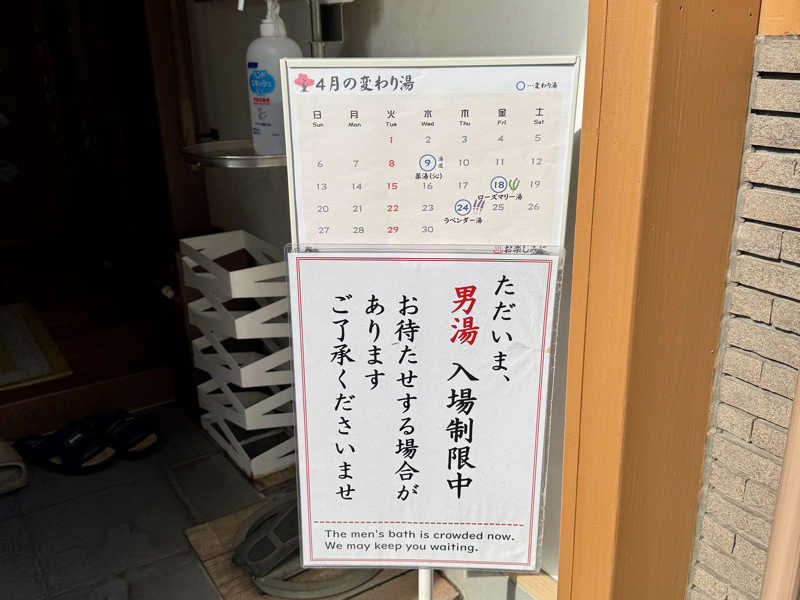 4月の変わり湯
○…変わり湯
日 月 火 水 木 金 土
Sun Mon Tue Wed Thu Fri Sat
1 2 3 4 5
6 7 8 9 10 11 12
薬湯(心)
13 14 15 16 17 18 19
ローズマリー湯
20 21 22 23 24 25 26
ラベンダー湯
27 28 29 30
ただいま、
男湯 入場制限中
お待たせする場合が
あります
ご了承くださいませ
The men's bath is crowded now.
We may keep you waiting.